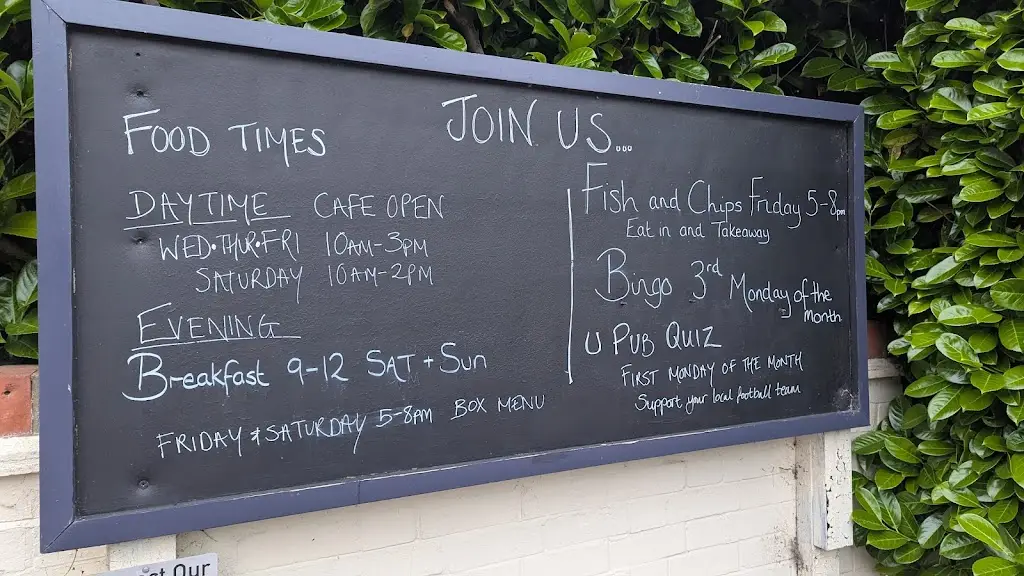 FOOD TIMES
DAYTIME CAFE OPEN
WED•THUR•FRI 10AM-3PM
SATURDAY 10AM-2PM
EVENING
Breakfast 9-12 SAT + Sun
FRIDAY & SATURDAY 5-8PM BOX MENU
JOIN US...
Fish and Chips Friday 5-8pm
Eat in and Takeaway
Bingo 3rd Monday of the
Month
PUB QUIZ
FIRST MONDAY OF THE MONTH
Support your local football team
Our